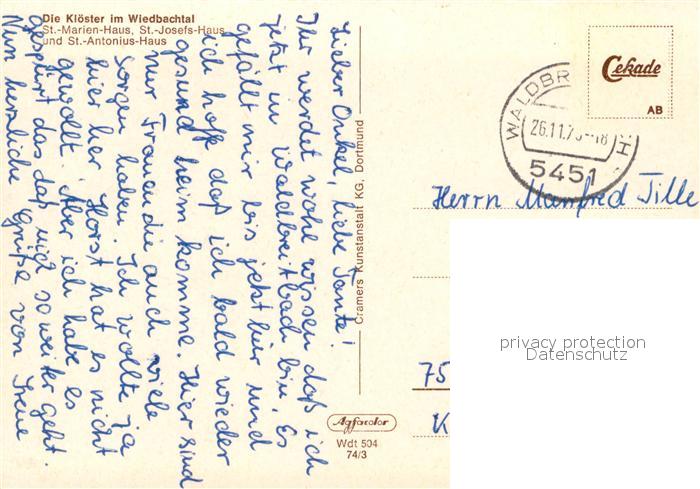 Die Klöster im Wiedbachtal
St.-Marien-Haus, St.-Josefs-Haus
und St.-Antonius-Haus
Lieber Onkel, liebe Tante!
Ihr werdet wohl wissen daß ich
jetzt in Waldbreitbach bin. Es
gefällt mir bis jetzt hier und
ich hoffe daß ich bald wieder
gesund heim komme. Hier sind
nur Frauen die auch viele
Sorgen haben. Ich wollte ja
hier her Horst hat es nicht
gewollt. Aber ich habe es
gespürt das daß nicht so weiter geht.
Nun herzliche Grüße von Irene
Cramers Kunstanstalt KG, Dortmund
Cekade
AB
WALDBR H
26.11.7 -18
5451
Herrn Manfred Tille
privacy protection
Datenschutz
75
K
Agfacolor
Wdt 504
74/3